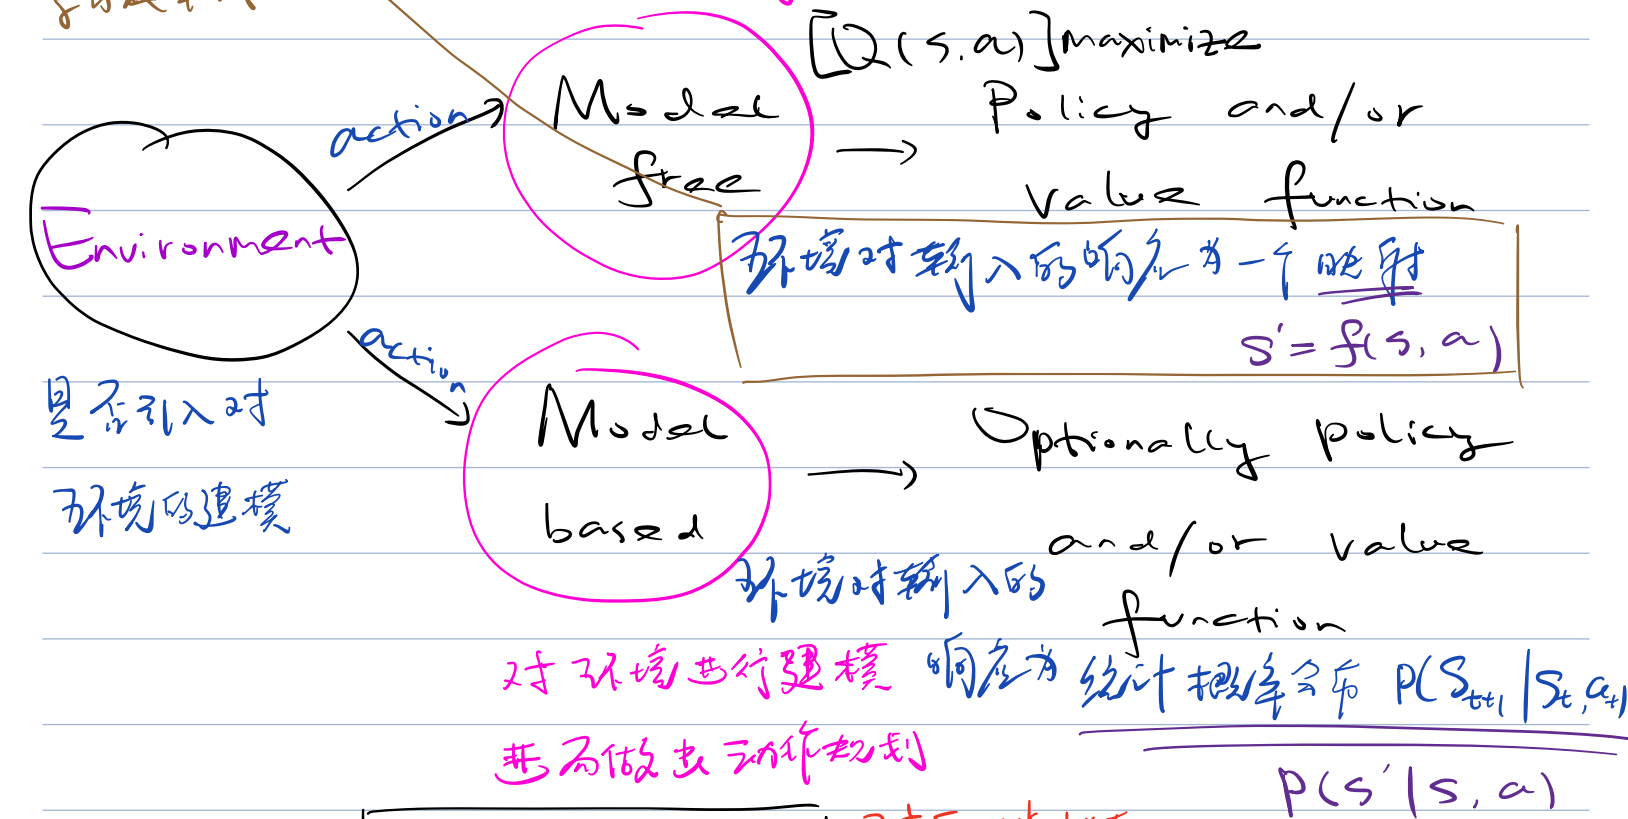 [Q(s,a)] maximize
action
Model
free
Policy and/or
value function
Environment
环境对输入的响应为一个映射
s'=f(s,a)
action
是否引入对
环境的建模
Model
based
Optionally policy
and/or value
function
环境对输入的
响应为 统计概率分布 P(S_{t+1}|S_t,a_t)
P(s'|s,a)
对环境进行建模
进而做出动作规划